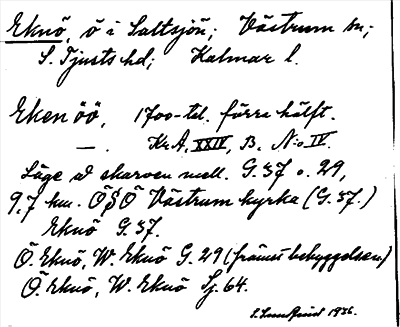 Eknö, ö i Saltsjön; Västrum sn;
S. Tjusts hd; Kalmar l.
Eken öö, 1700-tal. förra hälft.
—. Kr.A. XXIV, B. N:o IV.
Läge å skarven mell. G.37 o. 29,
9,7 km. ÖSÖ Västrum kyrka (G.37.)
Eknö G.37.
Ö. Eknö, W. Eknö G.29 (främst bebyggelsen)
Ö. Eknö, W. Eknö Sj. 64.
1936.